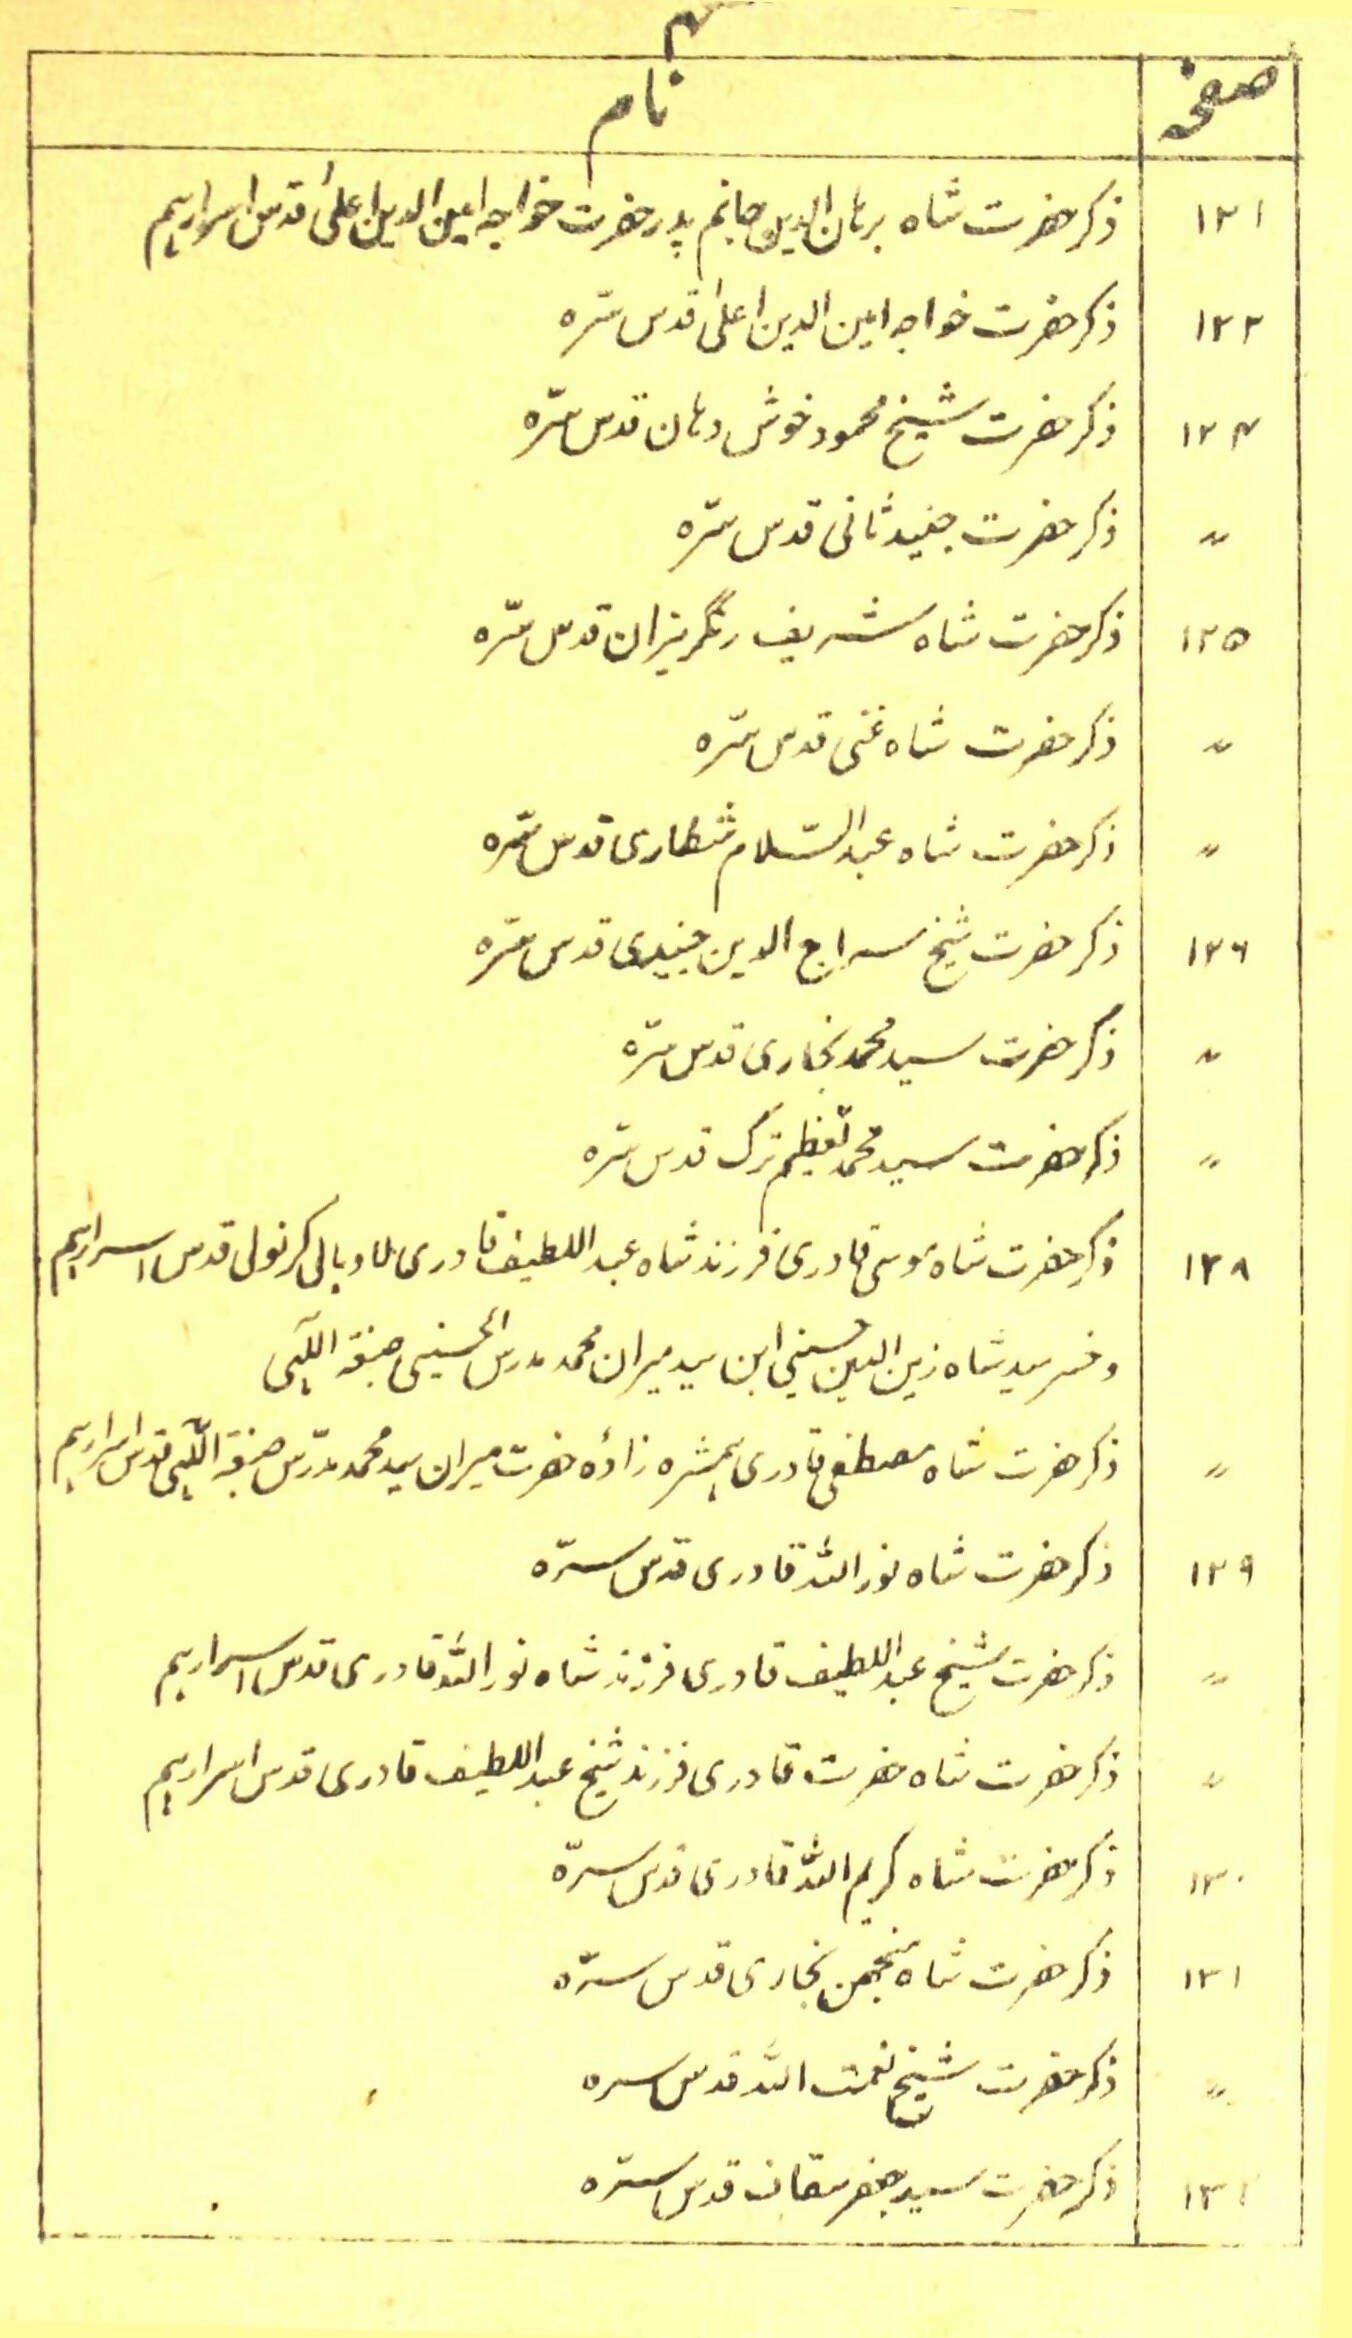 صفحه نام
۱۲۱ ذکر حضرت شاه برهان الدین جانم پدر حضرت خواجه امین الدین اعلیٰ قدس اسرارہم
۱۲۲ ذکر حضرت خواجه امین الدین اعلیٰ قدس سرّه
۱۲۴ ذکر حضرت شیخ محمود خوش دهان قدس سرّه
״ ذکر حضرت جنید ثانی قدس سرّه
۱۲۵ ذکر حضرت شاه شریف رنگریزان قدس سرّه
״ ذکر حضرت شاه غنی قدس سرّه
״ ذکر حضرت شاه عبد السّلام شطاری قدس سرّه
۱۲۶ ذکر حضرت شیخ سراج الدین جنیدی قدس سرّه
״ ذکر حضرت سید محمد بخاری قدس سرّه
״ ذکر حضرت سید محمد تعظیم ترک قدس سرّه
۱۲۸ ذکر حضرت شاه موسی قادری فرزند شاه عبد اللطیف قادری کرنولی قدس اسرارہم
و خسر سید شاه زین الدین حسینی ابن سید میران محمد مدرس الحسینی صبغة اللّٰہی
״ ذکر حضرت شاه مصطفی قادری ہمشیره زادهٔ حضرت میران سید محمد مدرّس صبغة اللّٰہی قدس اسرارہم
۱۲۹ ذکر حضرت شاه نور اللہ قادری قدس سرّه
״ ذکر حضرت شیخ عبد اللطیف قادری فرزند شاه نور اللہ قادری قدس اسرارہم
״ ذکر حضرت شاه حضرت قادری فرزند شیخ عبد اللطیف قادری قدس اسرارہم
۱۳۰ ذکر حضرت شاه کریم اللہ قادری قدس سرّه
۱۳۱ ذکر حضرت شاه منجھن بخاری قدس سرّه
״ ذکر حضرت شیخ نعمت اللہ قدس سره
ذکر حضرت سید جعفر سقاف قدس سرّه